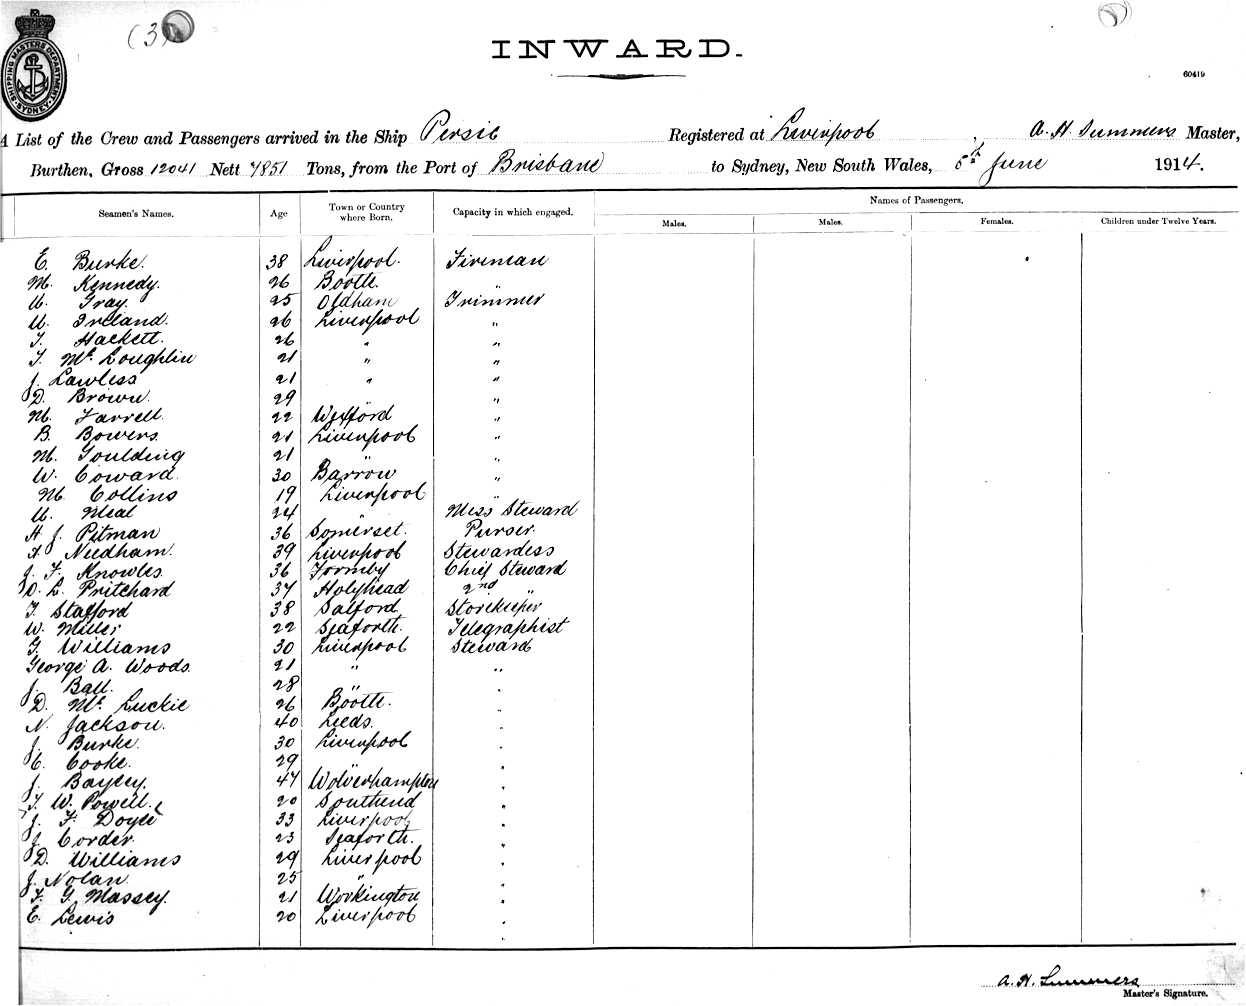 (3)
SHIPPING MASTERS DEPARTMENT SYDNEY
INWARD.
60419
A List of the Crew and Passengers arrived in the Ship Persic Registered at Liverpool, A. H. Summers Master,
Burthen, Gross 12041 Nett 7851 Tons, from the Port of Brisbane to Sydney, New South Wales, 5th June 1914.
Seamen's Names. Age Town or Country where Born. Capacity in which engaged. Names of Passengers.
Males. Males. Females. Children under Twelve Years.
E. Burke. 38 Liverpool. Fireman
M. Kennedy. 26 Bootle. "
U. Gray. 25 Oldham Trimmer
U. Ireland. 26 Liverpool "
T. Hackett. 26 " "
T. Mc Loughlin 21 " "
J. Lawless 21 " "
D. Brown. 29 " "
M. Farrell. 22 Wexford "
B. Bowers. 21 Liverpool "
M. Goulding 21 " "
W. Coward 30 Barrow "
M. Collins 19 Liverpool "
U. Neal 24 " Mess Steward
H. J. Pitman 36 Somerset. Purser.
Needham. 39 Liverpool Stewardess
J. F. Knowles 36 Formby Chief Steward
O. L. Pritchard 34 Holyhead 2nd "
T. Stafford 38 Salford Storekeeper
W. Miller 22 Seaforth. Telegraphist
G. Williams 30 Liverpool Steward
George A. Woods. 21 " "
J. Ball. 28 " "
D. Mc Luckie 26 Bootle. "
N. Jackson. 40 Leeds. "
J. Burke. 30 Liverpool "
C. Cooke. 29 " "
J. Bayley. 47 Wolverhampton "
T. W. Powell. 20 Southend "
J. F. Doyle 33 Liverpool "
J. Corder. 23 Seaforth. "
D. Williams 29 Liverpool "
J. Nolan. 25 " "
F. G. Massey. 21 Workington "
E. Lewis 20 Liverpool "
A. H. Summers
Master's Signature.